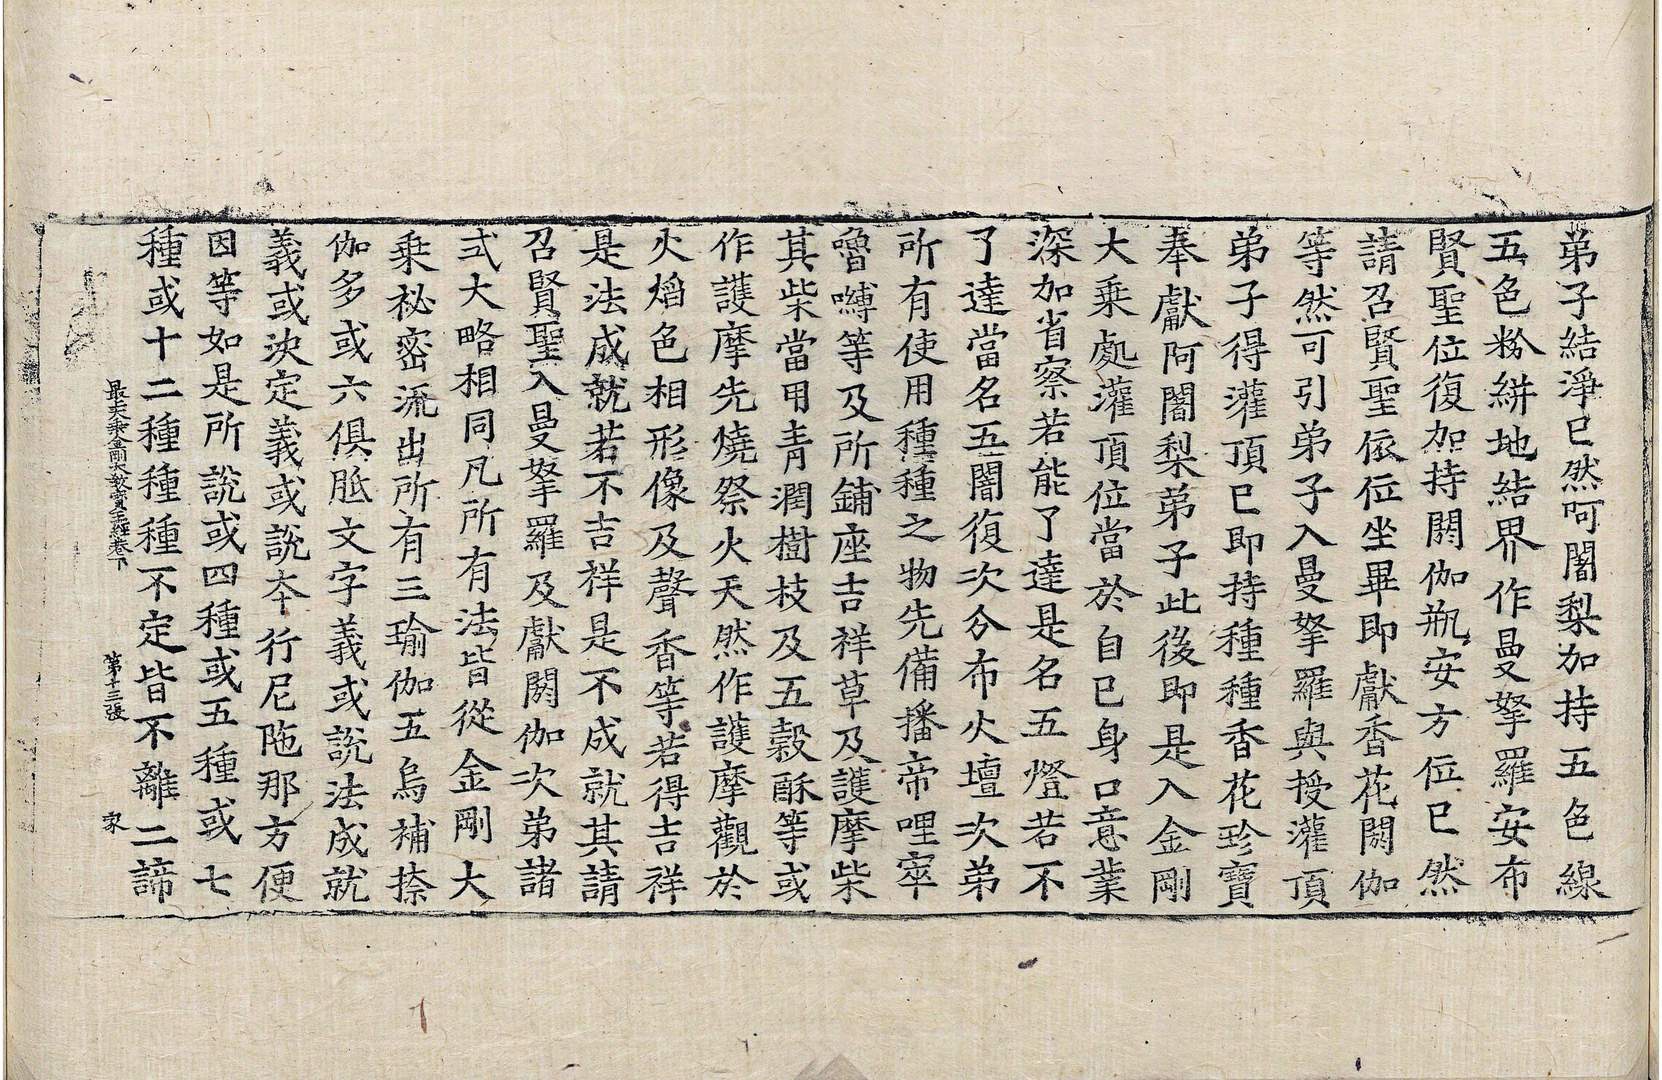 弟子結淨已然阿闍梨加持五色線
五色粉絣地結界作曼拏羅安布
賢聖位復加持閼伽瓶安方位已然
請召賢聖依位坐畢即獻香花閼伽
等然可引弟子入曼拏羅與授灌頂
弟子得灌頂已即持種種香花珍寶
奉獻阿闍梨弟子此後即是入金剛
大乘處灌頂位當於自已身口意業
深加省察若能了達是名五燈若不
了達當名五闇復次分布火壇次弟
所有使用種種之物先備播帝哩寧
嚕嚩等及所鋪座吉祥草及護摩柴
其柴當用青潤樹枝及五穀酥等或
作護摩先燒祭火天然作護摩觀於
火焰色相形像及聲香等若得吉祥
是法成就若不吉祥是不成就其請
召賢聖入曼拏羅及獻閼伽次弟諸
式大略相同凡所有法皆從金剛大
乘祕密流出所有三瑜伽五烏補捺
伽多或六俱胝文字義或說法成就
義或決定義或說本行尼陁那方便
因等如是所說或四種或五種或七
種或十二種種種不定皆不離二諦
最上大乘金剛大教寶王經卷下 第十三張 家